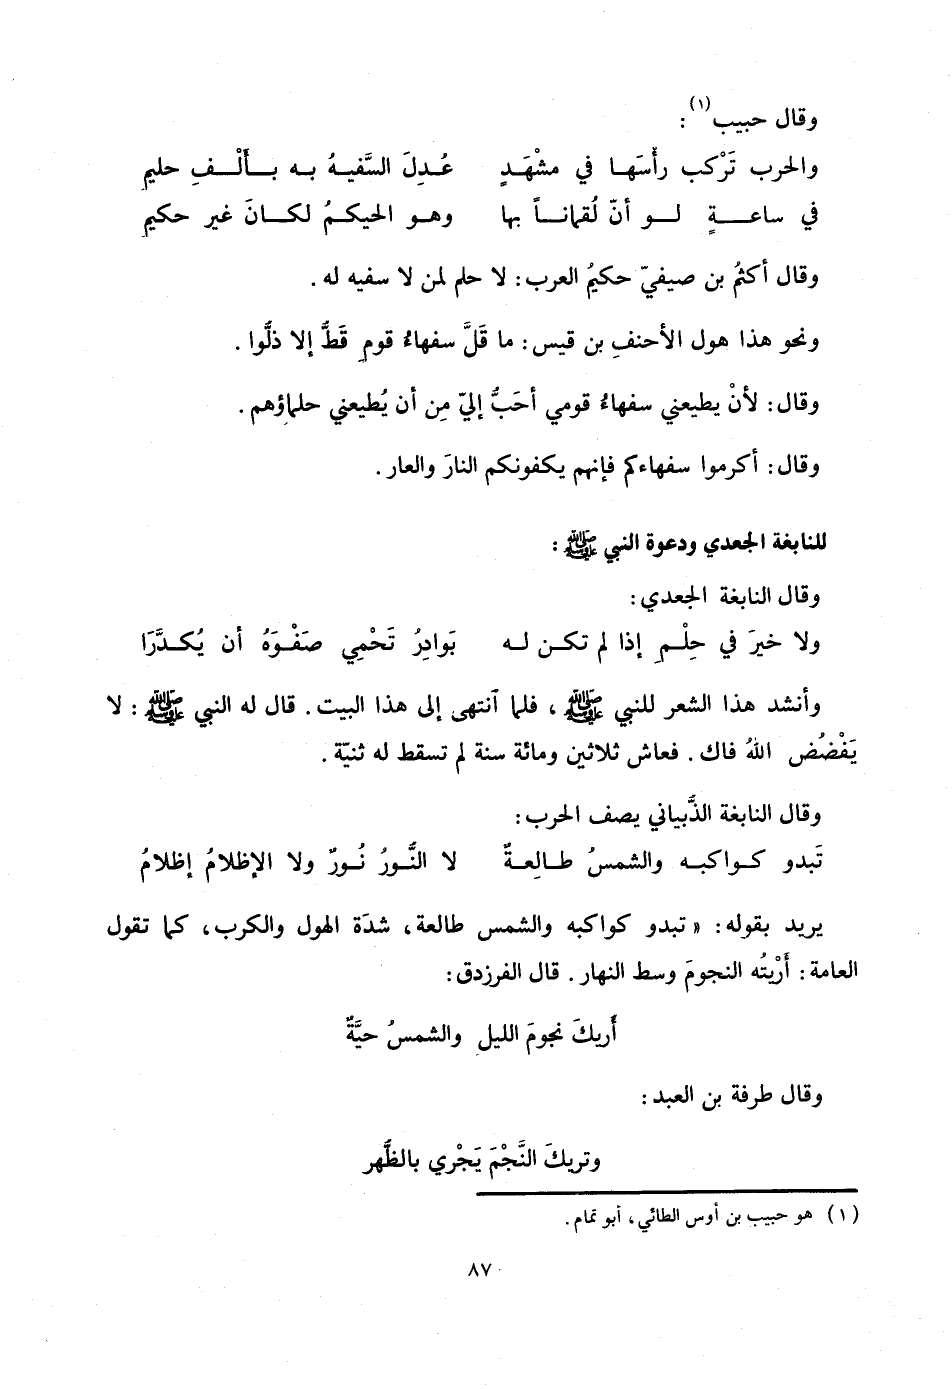 وقال حبيب(١):
والحرب تَرْكب رأْسَهـا في مشْهَـدٍ عُـدِلَ السَّفيـهُ بـه بـأَلْـفِ حليمِ
في ساعـةٍ لـو أنّ لُقمانـاً بها وهـو الحيكـمُ لكـانَ غير حكيمِ
وقال أكثمُ بن صيفيّ حكيمُ العرب: لا حلم لمن لا سفيه له.
ونحو هذا هول الأحنفِ بن قيس: ما قَلَّ سفهاءُ قومٍ قَطُّ إلا ذلُّوا.
وقال: لأنْ يطيعني سفهاءُ قومي أحَبُّ إليّ مِن أن يُطيعني حلماؤهم.
وقال: أكرموا سفهاءكم فإنهم يكفونكم النارَ والعار.
للنابغة الجعدي ودعوة النبي ﷺ:
وقال النابغة الجعدي:
ولا خيرَ في حِلْـمٍ إذا لم تكـن لـه بَوادِرُ تَحْمِي صفْـوَهُ أن يُكـدَّرَا
وأنشد هذا الشعر للنبي ﷺ، فلما آنتهى إلى هذا البيت. قال له النبي ﷺ: لا
يَفْضُض اللهُ فاك. فعاش ثلاثين ومائة سنة لم تسقط له ثنيّة.
وقال النابغة الذُّبياني يصف الحرب:
تَبدو كـواكبـه والشمسُ طـالِعـةٌ لا النُّـورُ نُـورٌ ولا الإظلامُ إظلامُ
يريد بقوله: «تبدو كواكبه والشمس طالعة، شدّة الهول والكرب، كما تقول
العامة: أرَيْتُه النجومَ وسط النهار. قال الفرزدق:
أُريكَ نجومَ الليلِ والشمسُ حيَّةٌ
وقال طرفة بن العبد:
وتريكَ النَّجْمَ يَجْري بالظُّهر
(١) هو حبيب بن أوس الطائي، أبو تمام.
٨٧